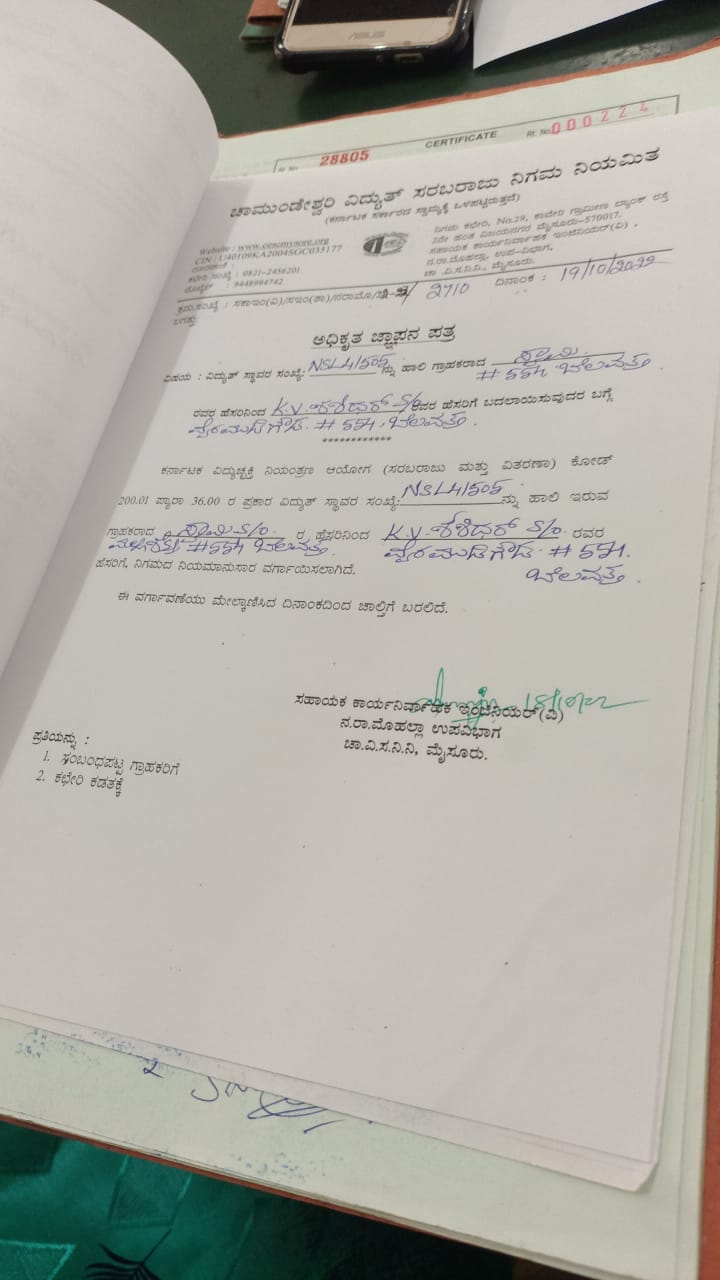 ASUS
CERTIFICATE
28805
Rt. No. 000224
ಚಾಮುಂಡೇಶ್ವರಿ ವಿದ್ಯುತ್ ಸರಬರಾಜು ನಿಗಮ ನಿಯಮಿತ
(ಕರ್ನಾಟಕ ಸರ್ಕಾರದ ಸ್ವಾಮ್ಯಕ್ಕೆ ಒಳಪಟ್ಟಿರುತ್ತದೆ)
Website : www.cescmysore.org
CIN : U40109KA2004SGC035177
ದೂರವಾಣಿ :
ಕಛೇರಿ ಸಂಖ್ಯೆ : 0821-2456201
ಮೊಬೈಲ್ : 9448994742
ನಿಗಮ ಕಛೇರಿ, No.29, ಕಾವೇರಿ ಗ್ರಾಮೀಣ ಬ್ಯಾಂಕ್ ರಸ್ತೆ
2ನೇ ಹಂತ ವಿಜಯನಗರ ಮೈಸೂರು-570017.
ಸಹಾಯಕ ಕಾರ್ಯನಿರ್ವಾಹಕ ಇಂಜಿನಿಯರ್(ವಿ) ,
ನ.ರಾ.ಮೊಹಲ್ಲಾ, ಉಪ-ವಿಭಾಗ,
ಚಾ .ವಿ.ಸ.ನಿ.ನಿ, ಮೈಸೂರು.
ಕ್ರಮ.ಸಂಖ್ಯೆ : ಸಕಾಇಂ(ವಿ)/ಸಇಂ(ತಾ)/ನರಾಮೊ/ 2710 ದಿನಾಂಕ : 19/10/2022
ಬಗತ್ತು:
ಅಧಿಕೃತ ಜ್ಞಾಪನ ಪತ್ರ
ವಿಷಯ : ವಿದ್ಯುತ್ ಸ್ಥಾವರ ಸಂಖ್ಯೆ: NSL4/505 ನ್ನು ಹಾಲಿ ಗ್ರಾಹಕರಾದ ಸ್ವಾಮಿ
# 554 ಬೆಲವತ್ತ .
ರವರ ಹೆಸರಿನಿಂದ K.V. ಶಶಿಧರ್ S/o ರವರ ಹೆಸರಿಗೆ ಬದಲಾಯಿಸುವುದರ ಬಗ್ಗೆ
ವೈರಮುಡಿಗೌಡ. # 554, ಬೆಲವತ್ತ .
************
ಕರ್ನಾಟಕ ವಿದ್ಯುಚ್ಛಕ್ತಿ ನಿಯಂತ್ರಣ ಆಯೋಗ (ಸರಬರಾಜು ಮತ್ತು ವಿತರಣಾ) ಕೋಡ್
200.01 ಪ್ಯಾರಾ 36.00 ರ ಪ್ರಕಾರ ವಿದ್ಯುತ್ ಸ್ಥಾವರ ಸಂಖ್ಯೆ: NSL4/505 ನ್ನು ಹಾಲಿ ಇರುವ
ಗ್ರಾಹಕರಾದ ಸ್ವಾಮಿ S/o. ರ ಹೆಸರಿನಿಂದ K.V. ಶಶಿಧರ್ S/o. ರವರ
#554 ಬೆಲವತ್ತ. ವೈರಮುಡಿಗೌಡ. # 554.
ಹೆಸರಿಗೆ, ನಿಗಮದ ನಿಯಮಾನುಸಾರ ವರ್ಗಾಯಿಸಲಾಗಿದೆ. ಬೆಲವತ್ತ .
ಈ ವರ್ಗಾವಣೆಯು ಮೇಲ್ಕಾಣಿಸಿದ ದಿನಾಂಕದಿಂದ ಚಾಲ್ತಿಗೆ ಬರಲಿದೆ.
18/10/22
ಸಹಾಯಕ ಕಾರ್ಯನಿರ್ವಾಹಕ ಇಂಜಿನಿಯರ್(ವಿ)
ನ.ರಾ.ಮೊಹಲ್ಲಾ ಉಪವಿಭಾಗ
ಚಾ.ವಿ.ಸ.ನಿ.ನಿ, ಮೈಸೂರು.
ಪ್ರತಿಯನ್ನು :
1. ಸಂಬಂಧಪಟ್ಟ ಗ್ರಾಹಕರಿಗೆ
2. ಕಛೇರಿ ಕಡತಕ್ಕೆ